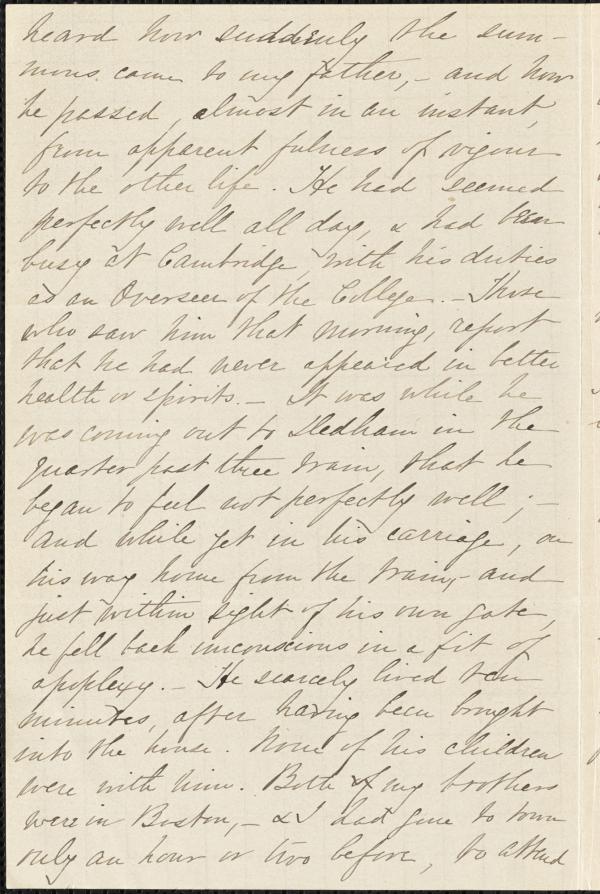 heard how suddenly the sum-
mons came to my father, - and how
he passed, almost in an instant,
from apparent fulness of vigour
to the other life. He had seemed
perfectly well all day, & had been
busy at Cambridge, with his duties
as an Overseer of the College. - Those
who saw him that morning, report
that he had never appeared in better
health or spirits. - It was while he
was coming out to Dedham in the
quarter past three train, that he
began to feel not perfectly well; -
and while yet in his carriage, on
his way home from the train, - and
just within sight of his own gate,
he fell back unconscious in a fit of
apoplexy. - He scarcely lived ten
minutes, after having been brought
into the house. None of his children
were with him. Both of my brothers
were in Boston, - & I had gone to town
only an hour or two before, to attend